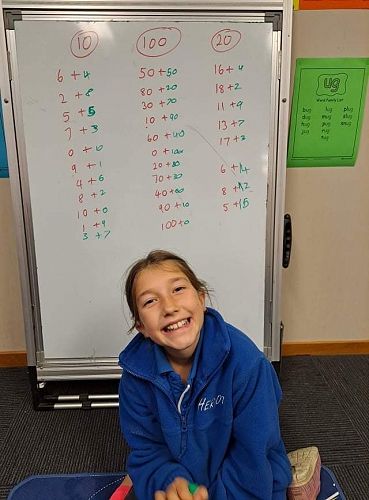 10
6 + 4
2 + 8
5 + 5
7 + 3
0 + 10
9 + 1
4 + 6
8 + 2
10 + 0
1 + 9
3 + 7
100
50 + 50
80 + 20
30 + 70
10 + 90
60 + 40
0 + 100
20 + 80
70 + 30
40 + 60
90 + 10
100 + 0
20
16 + 4
18 + 2
11 + 9
13 + 7
17 + 3
6 + 14
8 + 12
5 + 15
ug
Word Family List
bug lug plug
dug mug slug
hug pug
jug rug
tug